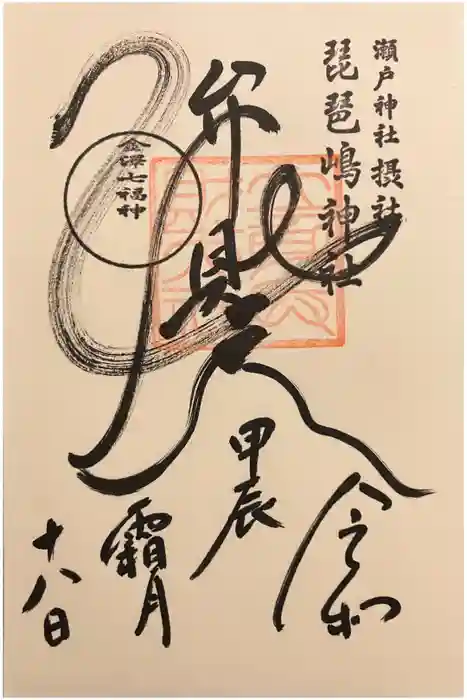 瀬戸神社摂社
琵琶嶋神社
弁
金澤七福神
令和
甲辰
霜月
十八日